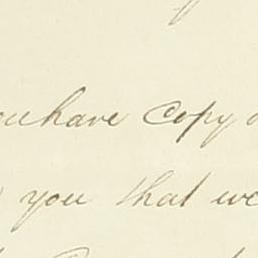 have Copy
you that we